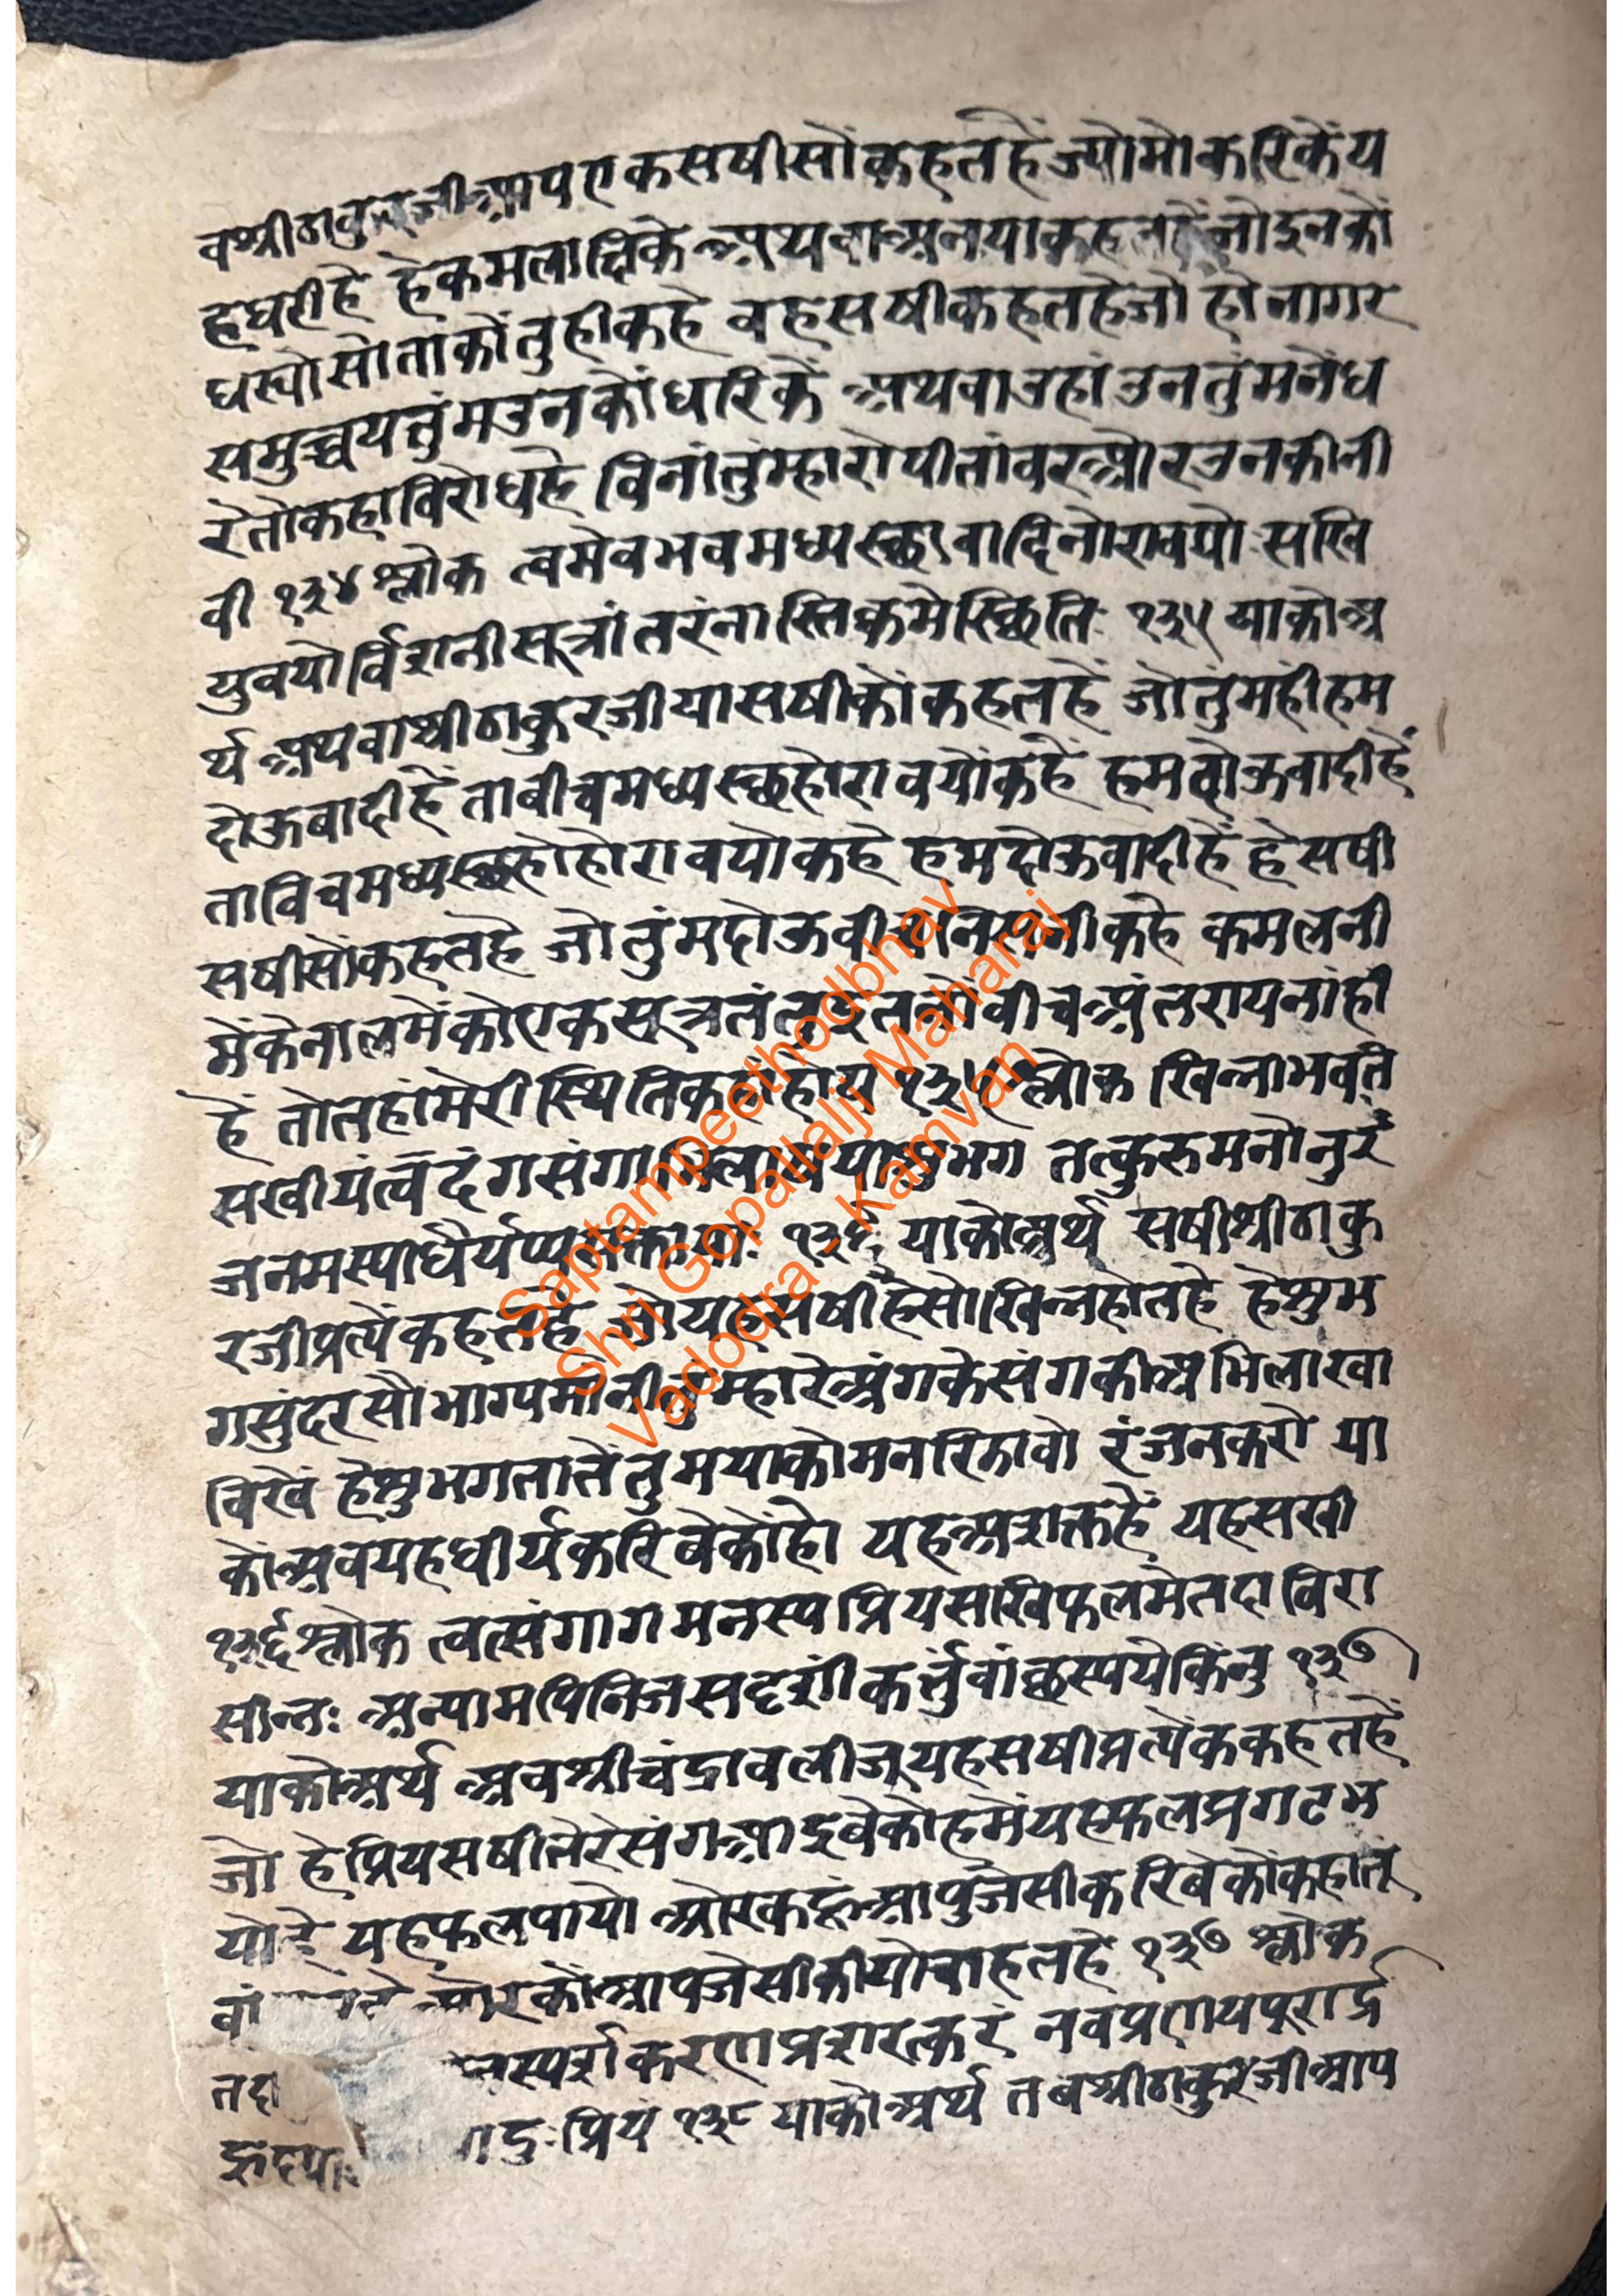 वश्रीठाकुरजीआपएकसषीसोंकहतहेंज्योमोकरिकेंय
हघरीहे हेकमलाक्षिके अथवाअनयाकहतहेंजोइनको
घस्योसोताकोंतुहीकहे वहसषीकहतहेजो होनागर
समुच्चयतुंमउनकोंधरिकें अथवाउहांउनतुंमनेंध
रेतोकहाविरोधहे विनांतुंम्हारोपीतांवरओरउनकीनी
वी १३४ श्लोक त्वमेवभवमध्यस्छावादिनोरावयो सखि
युवयोर्विशनीसूत्रांतरंनास्तिक्वमेस्छिति १३५ याकोअ
र्थ अथवाश्रीठाकुरजीयासषीकोंकहतहें जोतुंमहीहम
दोऊवादीहें तावीचमध्यस्छहोरावयोंकहें हमदोऊवादीहें
ताविचमध्यस्छहोहोरावयोकहे हमदोऊवादीहें हेसषी
सषीसोंकहतहे जोतुंमदोऊवी कहे कमलनी
मेंकेनालमेंकोएकसूत्रतंतूइतनोंवीचअंतरायनांही
हें तोतहांमेरीस्थितिकहांहोय १३५ श्लोक खिन्नाभवत
सखीयंत्वदंगसंगाभिलाषयासुभग तत्कुरुमनोनुरं
जनमस्याधैर्यप्य १३६ याकोअर्थ सषीश्रीठाकु
रजीप्रत्येंकहतहे जोयहसषीहेसो खिन्नहोतहे हेसुभ
गसुंदरसौभाग्यमोनीतुम्हारेअंगकेसंगकीअभिलाखा
विखें हेसुभगतातेंतुमयाकोमनरिझावो रंजनकरो या
कोंअवयहधीर्यकरिवेकोंहो यहअशक्तहें यहसखी
१३६ श्लोक त्वत्संगागमनस्यप्रियसखिफलमेतदाविरा
सीन्तः अन्यामपिनिजसदृशीं कर्त्तुंवांछस्पयेकिंनु १३७
याकोअर्थ अवश्रीचंद्रावलीजूयहसषीप्रत्येककहतहें
जो हेप्रियसषीतेरेसंगआइवेकोहमेंयहफलप्रगटभ
योहे यहफलपायो ओरकहूंआपुजेसीकरिवेकोंकहातूं
वां ओरकोंआपजेसीकीयोचाहतहे १३७ श्लोक
तदा स्पर्शकरणप्रशरत्करं नवप्रणयपूरार्द्र
हृदया दुःप्रियं १३८ याकोअर्थ तबश्रीठाकुरजीआप
Saptampeethodbhav
Shri Gopallalji Maharaj
Vadodra - Kamvan